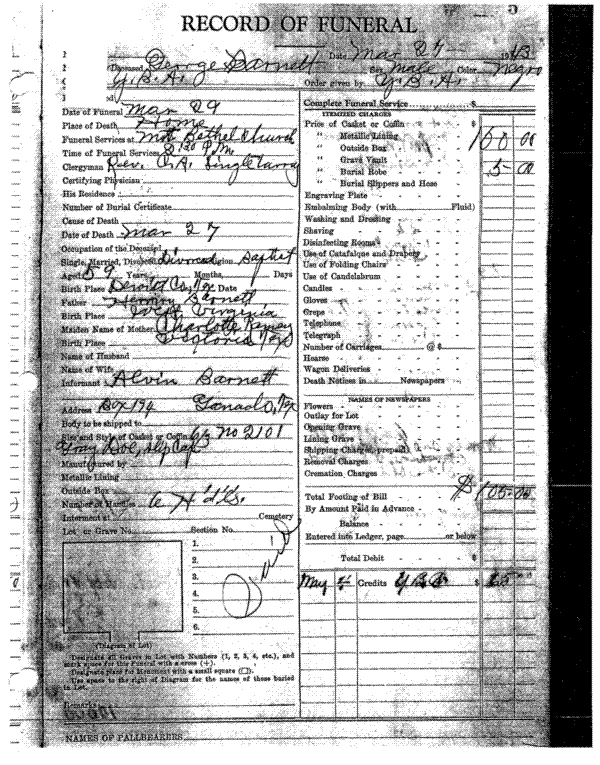 RECORD OF FUNERAL
Date Mar 27 — 19 43
Deceased George Barnett Sex Male Color Negro
Y. B. A. Order given by Y. B. A.
Date of Funeral Mar 29
Place of Death Home
Funeral Services at Mt Bethel Church
Time of Funeral Services 2:30 P.M.
Clergyman Rev. C. A. Singletarry
Certifying Physician
His Residence
Number of Burial Certificate
Cause of Death
Date of Death Mar 27
Occupation of the Deceased
Single, Married, Divorced Divorced Religion Baptist
Aged 59 Years Months, Days
Birth Place Dewitt Co, Tex Date
Father Henry Barnett
Birth Place West Virginia
Maiden Name of Mother Charlotte
Birth Place Victoria Tex
Name of Husband
Name of Wife
Informant Alvin Barnett
Address Box 194 Ganado, Tex
Body to be shipped to
Size and Style of Casket or Coffin 6/3 No 2101
Gray Doe,
Manufactured by
Metallic Lining
Outside Box
Number of Handles 6 H'd'ls.
Interment at Cemetery
Lot or Grave No. Section No.
1.
2.
3.
4.
5.
6.
(Diagram of Lot)
Designate all Graves in Lot with Numbers (1, 2, 3, 4, etc.), and
mark space for this Funeral with a cross (+).
Designate place for Monument with a small square (□).
Use space to the right of Diagram for the names of those buried
in Lot.
Remarks
NAMES OF PALLBEARERS
Complete Funeral Service $
ITEMIZED CHARGES
Price of Casket or Coffin $ 100 00
" Metallic Lining
" Outside Box
" Grave Vault
" Burial Robe 5 00
" Burial Slippers and Hose
Engraving Plate
Embalming Body (with Fluid)
Washing and Dressing
Shaving
Disinfecting Rooms
Use of Catafalque and Drapery
Use of Folding Chairs
Use of Candelabrum
Candles
Gloves
Crepe
Telephone
Telegraph
Number of Carriages @ $
Hearse
Wagon Deliveries
Death Notices in Newspapers
NAMES OF NEWSPAPERS
Flowers
Outlay for Lot
Opening Grave
Lining Grave
Shipping Charges, prepaid
Removal Charges
Cremation Charges
Total Footing of Bill $ 105 00
By Amount Paid in Advance
Balance
Entered into Ledger, page or below
Total Debit $
May 4 Credits Y B A $